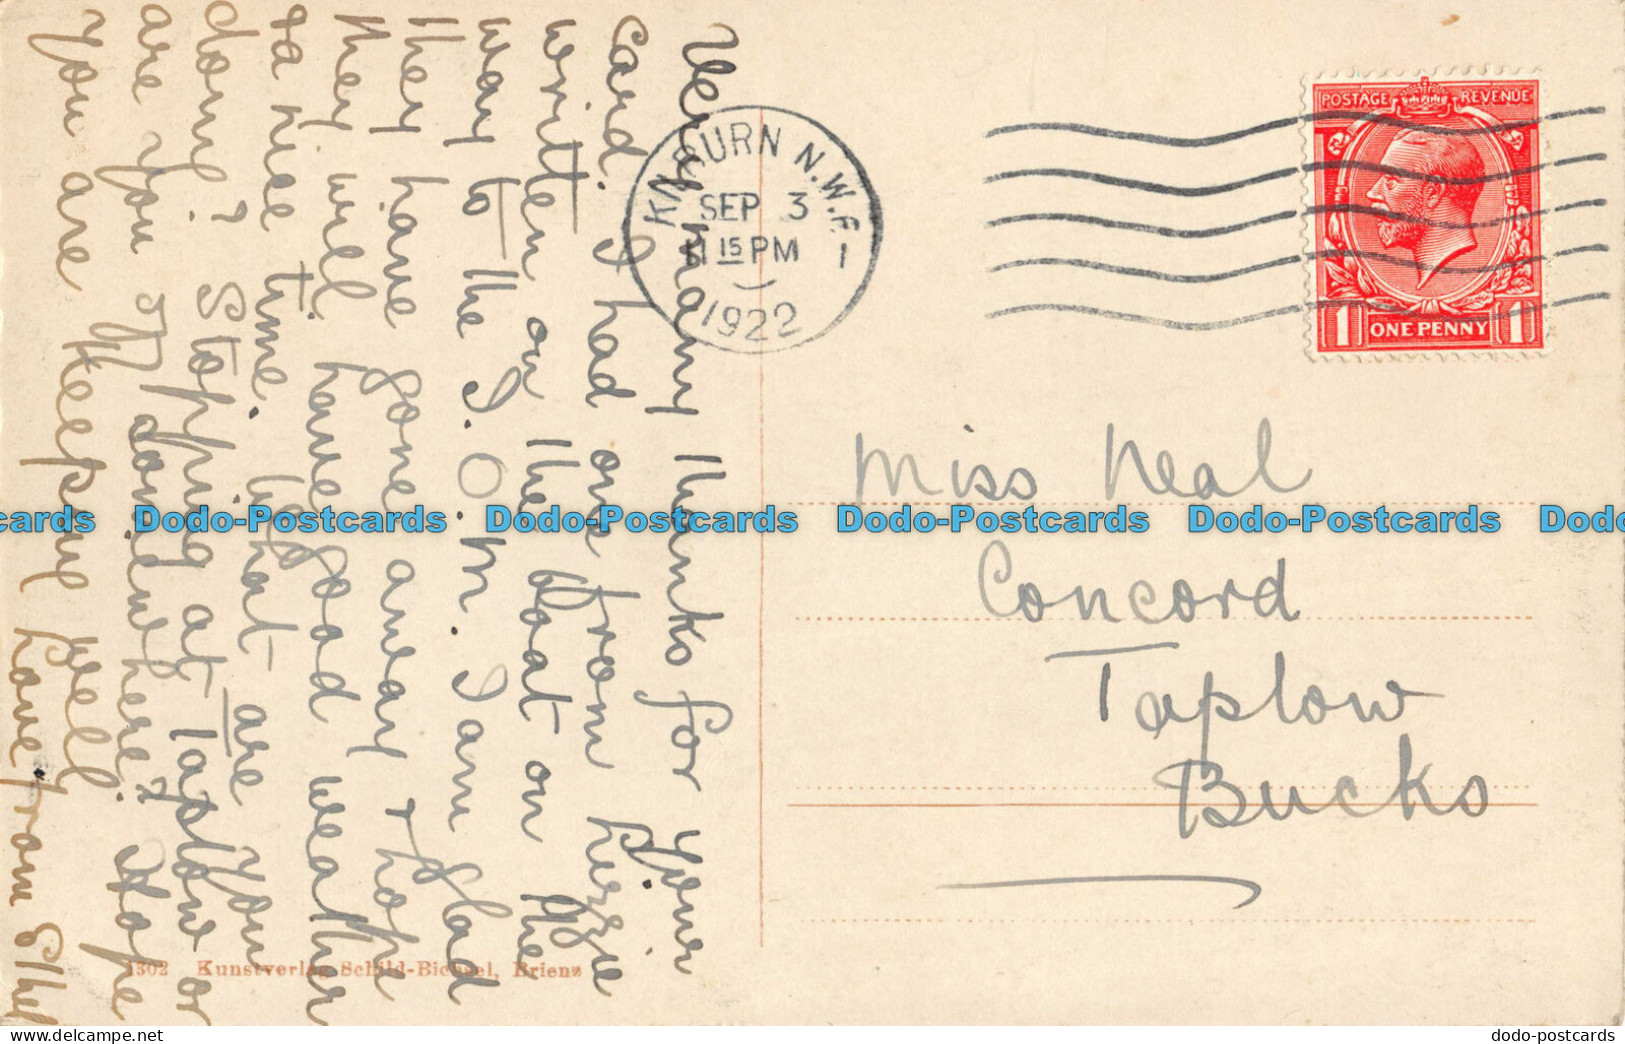 Very many thanks for your
card. I had one from Lizzie
written on the boat on the
way to the I.O.M. I am glad
they have gone away & hope
they will have good weather
& a nice time. What are you
doing? Stopping at Taplow or
are you off somewhere? Hope
you are keeping well.
Love from Ethel
KILBURN N.W.6.
SEP 3
11 15 PM
1922
POSTAGE REVENUE
1 ONE PENNY 1
Miss Neal
Concord
Taplow
Bucks
1302 Kunstverlag Schild-Bichsel, Brienz
cards Dodo-Postcards Dodo-Postcards Dodo-Postcards Dodo-Postcards Dodo
delcampe.net
dodo-postcards